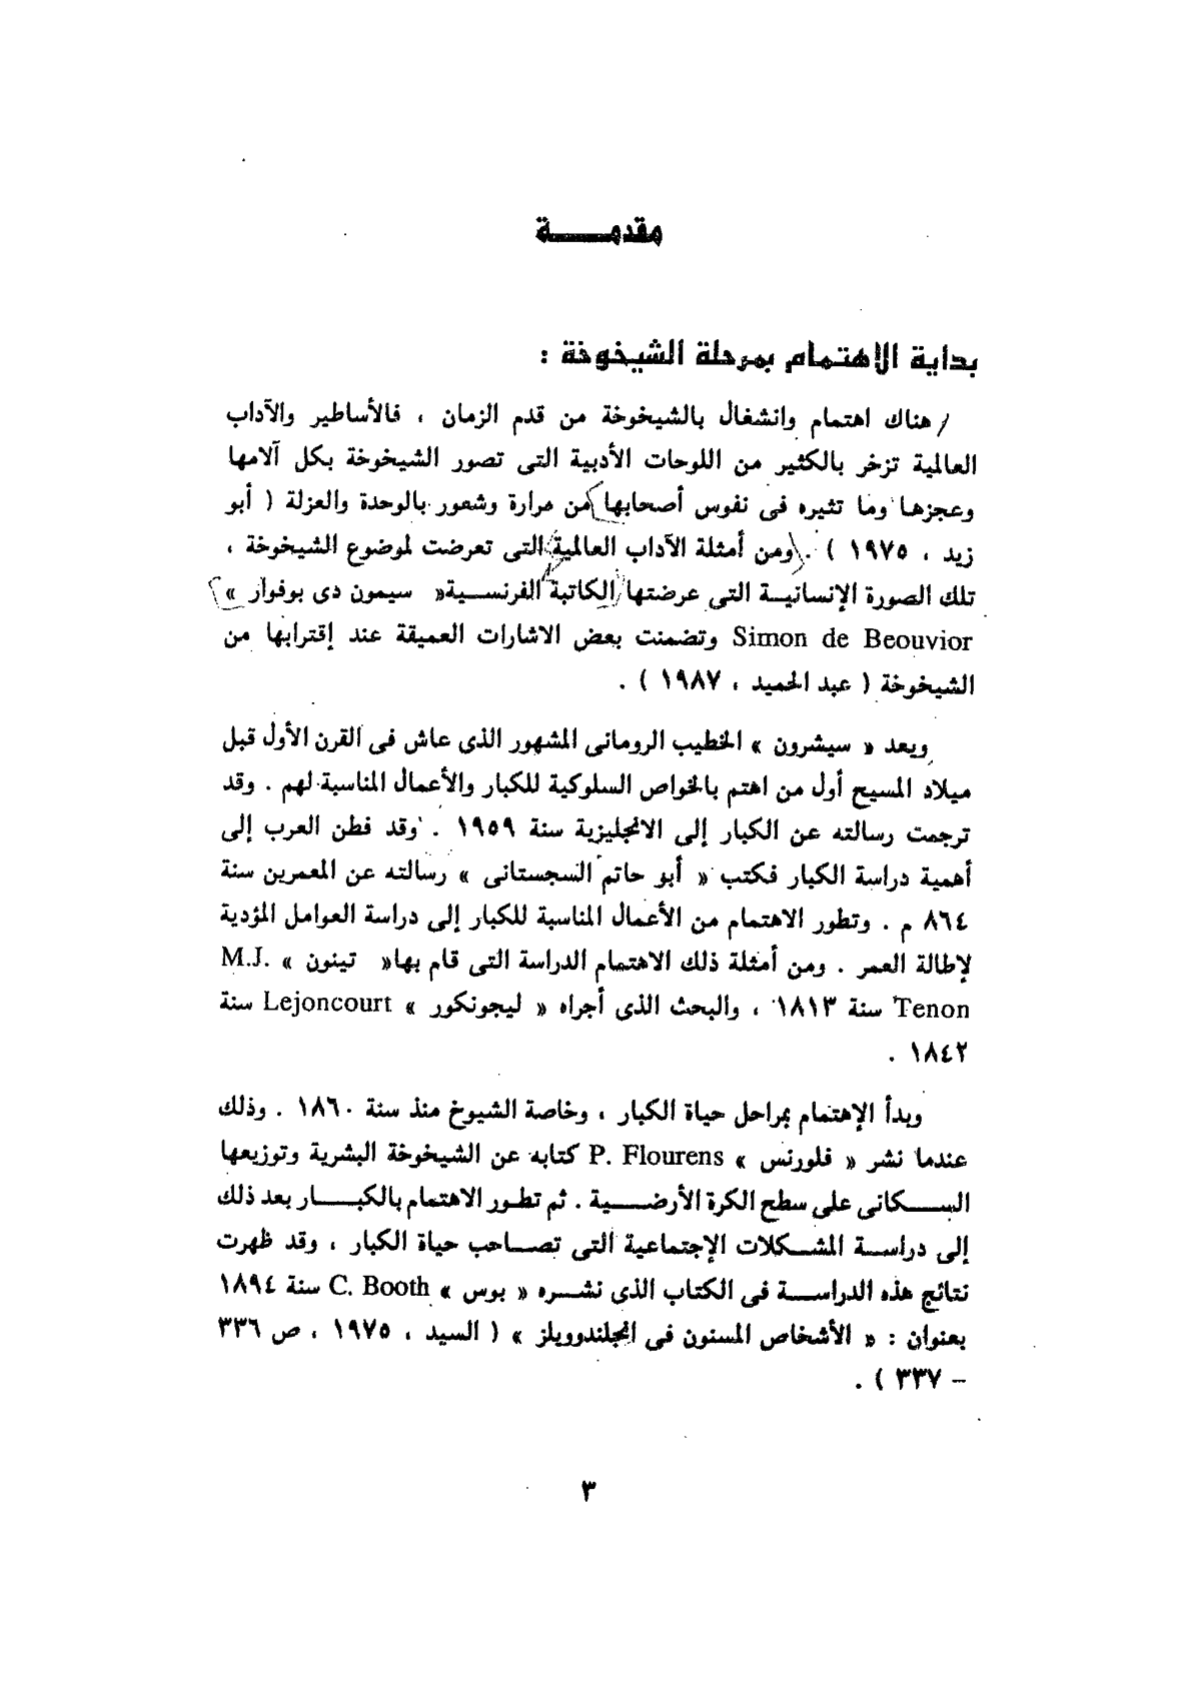 مقدمـــــة
بداية الاهتمام بمرحلة الشيخوخة :
هناك اهتمام وانشغال بالشيخوخة من قدم الزمان ، فالأساطير والآداب
العالمية تزخر بالكثير من اللوحات الأدبية التى تصور الشيخوخة بكل آلامها
وعجزها وما تثيره فى نفوس أصحابها من مرارة وشعور بالوحدة والعزلة ( أبو
زيد ، ١٩٧٥ ) . ومن أمثلة الآداب العالمية التى تعرضت لموضوع الشيخوخة ،
تلك الصورة الإنسانيـــة التى عرضتها الكاتبة الفرنســـية« سيمون دى بوفوار »
Simon de Beouvior وتضمنت بعض الاشارات العميقة عند إقترابها من
الشيخوخة ( عبد الحميد ، ١٩٨٧ ) .
ويعد « سيشرون » الخطيب الرومانى المشهور الذى عاش فى القرن الأول قبل
ميلاد المسيح أول من اهتم بالخواص السلوكية للكبار والأعمال المناسبة لهم . وقد
ترجمت رسالته عن الكبار إلى الانجليزية سنة ١٩٥٩ . وقد فطن العرب إلى
أهمية دراسة الكبار فكتب « أبو حاتم السجستانى » رسالته عن المعمرين سنة
٨٦٤ م . وتطور الاهتمام من الأعمال المناسبة للكبار إلى دراسة العوامل المؤدية
لإطالة العمر . ومن أمثلة ذلك الاهتمام الدراسة التى قام بها« تينون » M.J.
Tenon سنة ١٨١٣ ، والبحث الذى أجراه « ليجونكور » Lejoncourt سنة
١٨٤٢ .
وبدأ الإهتمام بمراحل حياة الكبار ، وخاصة الشيوخ منذ سنة ١٨٦٠ . وذلك
عندما نشر « فلورنس » P. Flourens كتابه عن الشيخوخة البشرية وتوزيعها
الســـكانى على سطح الكرة الأرضـــية . ثم تطـور الاهتمام بالكبـــار بعد ذلك
إلى دراســة المشــكلات الإجتماعية التى تصــاحب حياة الكبار ، وقد ظهرت
نتائج هذه الدراســـة فى الكتاب الذى نشــره « بوس » C. Booth سنة ١٨٩٤
بعنوان : « الأشخاص المسنون فى انجلندوويلز » ( السيد ، ١٩٧٥ ، ص ٣٣٦
– ٣٣٧ ) .
٣